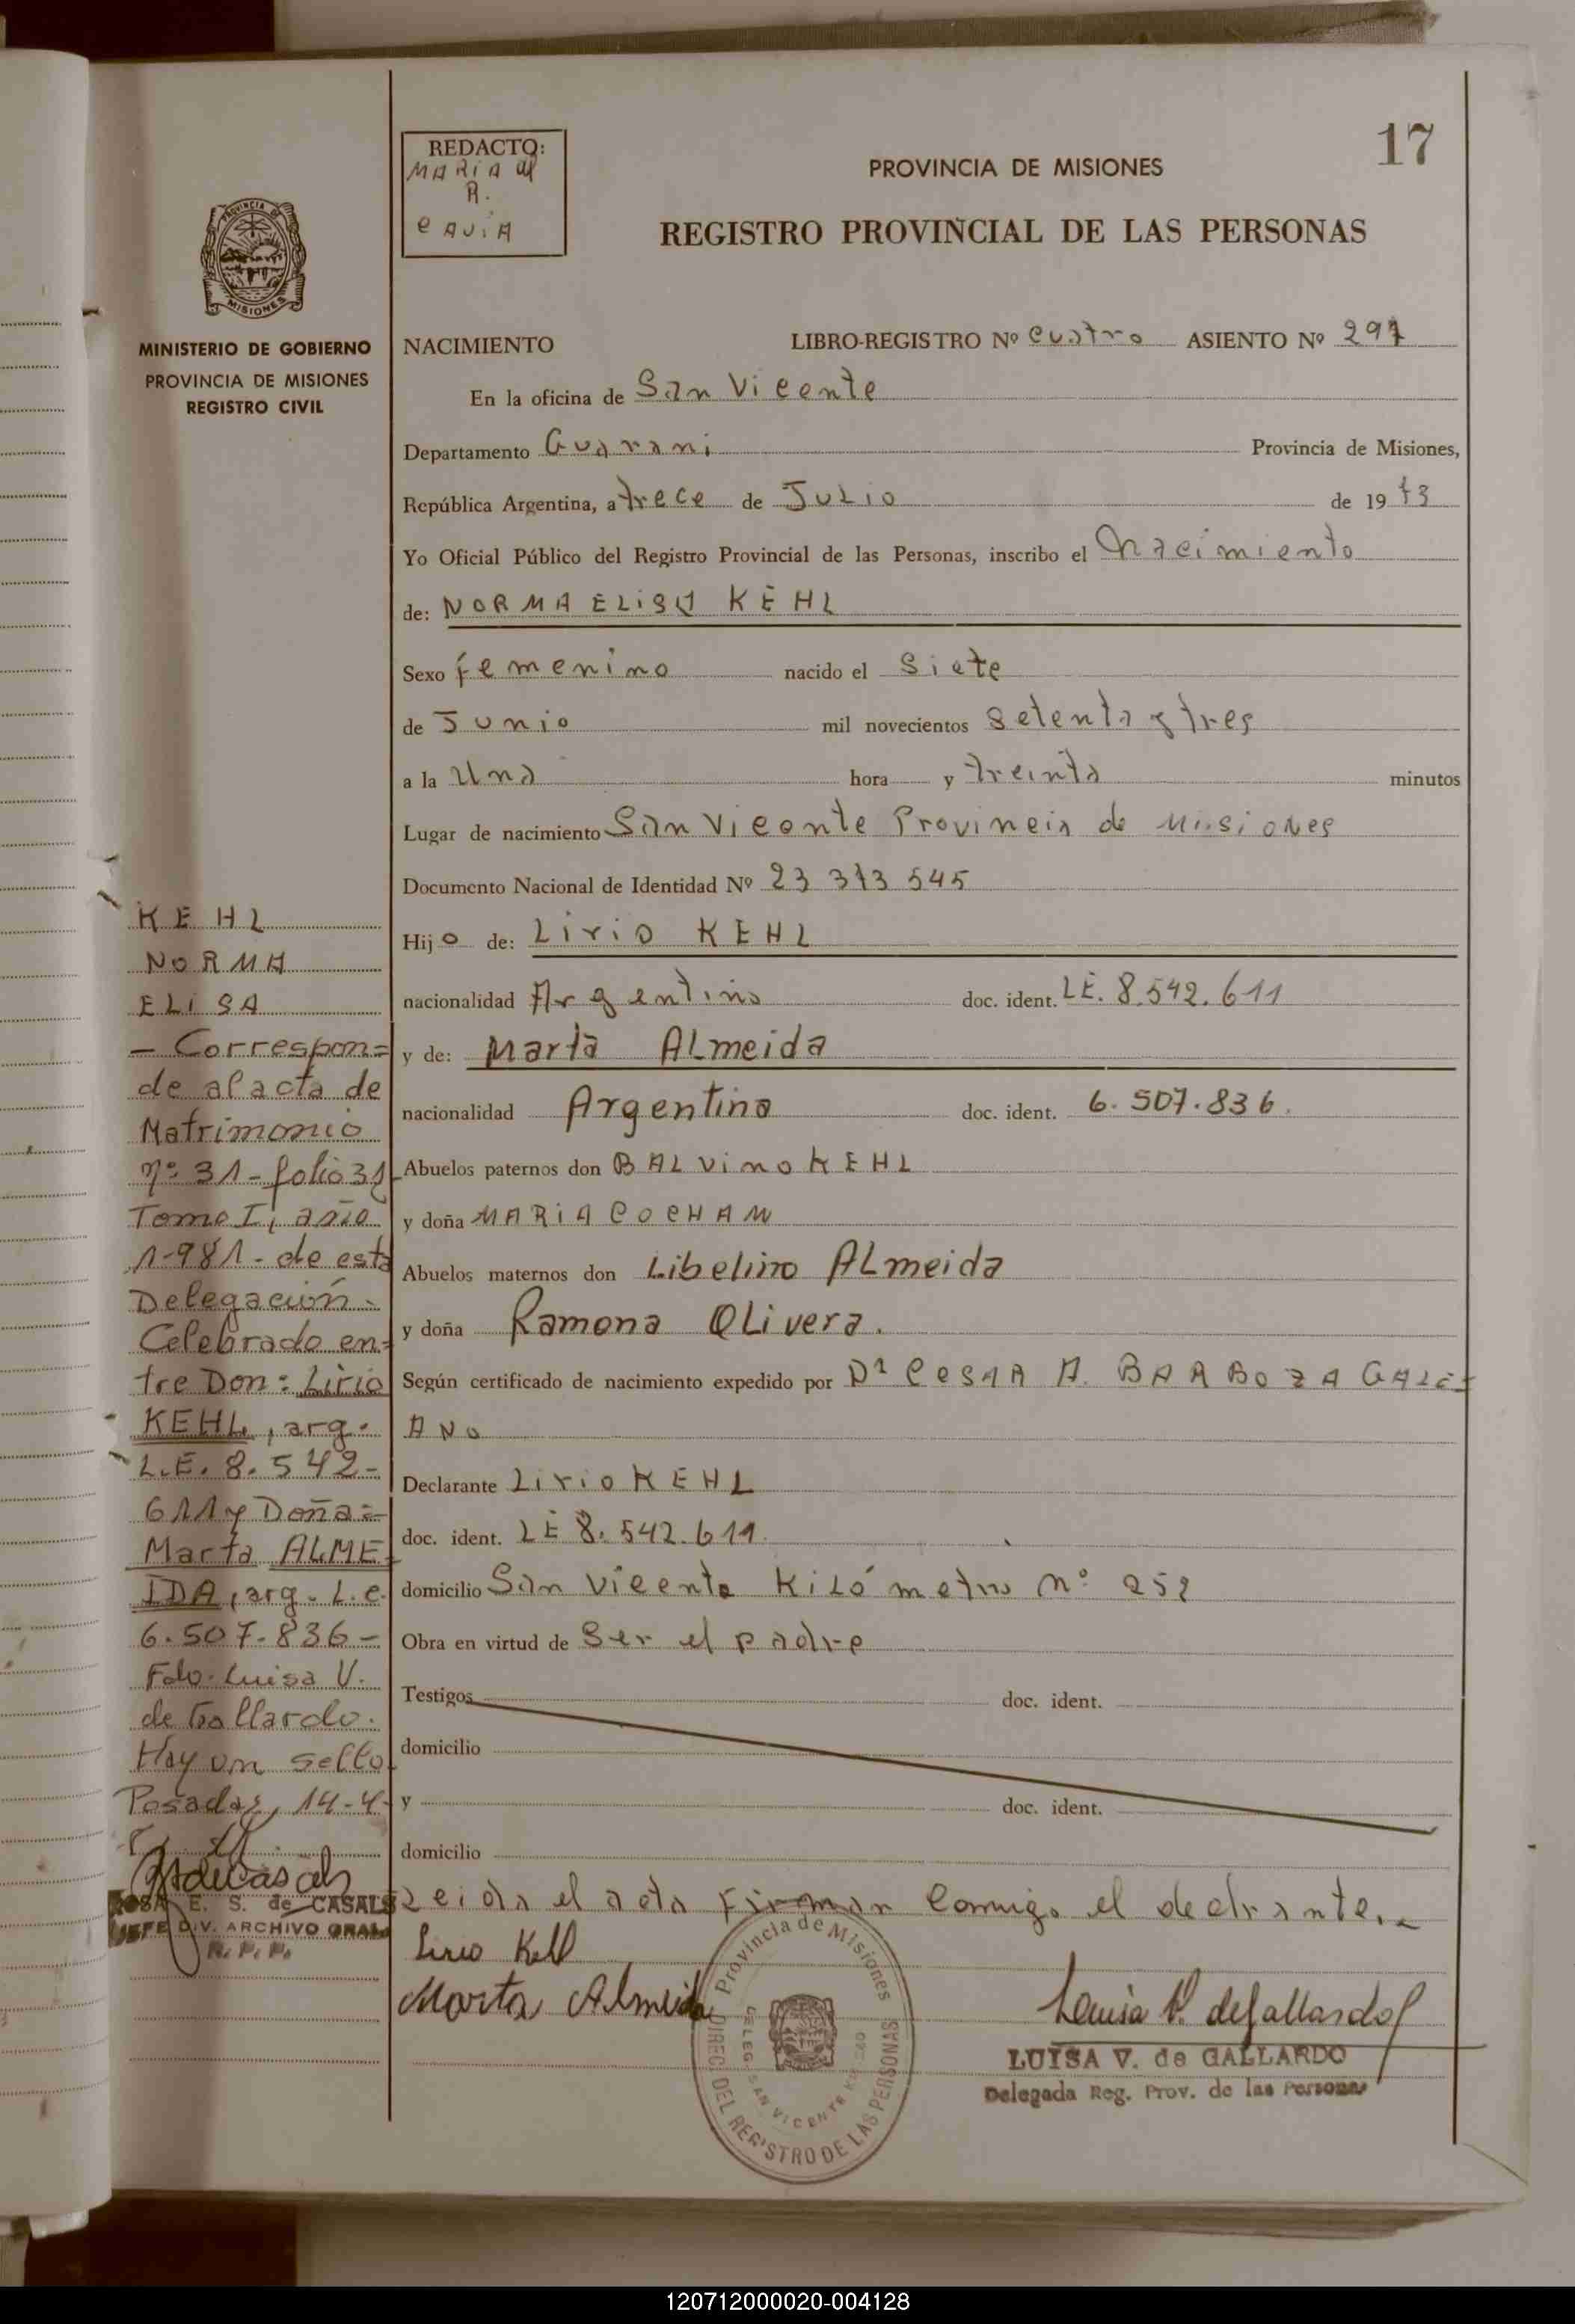 17
REDACTO:
MARIA
R.
PROVINCIA DE MISIONES
REGISTRO PROVINCIAL DE LAS PERSONAS
PROVINCIA DE
MISIONES
MINISTERIO DE GOBIERNO
PROVINCIA DE MISIONES
REGISTRO CIVIL
NACIMIENTO LIBRO-REGISTRO Nº cuatro ASIENTO Nº 297
En la oficina de San Vicente
Departamento Guarani Provincia de Misiones,
República Argentina, a trece de Julio de 1973
Yo Oficial Público del Registro Provincial de las Personas, inscribo el Nacimiento
de: NORMA ELISA KEHL
Sexo femenino nacido el Siete
de Junio mil novecientos setenta y tres
a la Una hora y treinta minutos
Lugar de nacimiento San Vicente Provincia de Misiones
Documento Nacional de Identidad Nº 23 373 545
Hijo de: Lirio KEHL
nacionalidad Argentino doc. ident. LE. 8.542.611
y de: Marta ALmeida
nacionalidad Argentina doc. ident. 6.507.836.
Abuelos paternos don BALvino KEHL
y doña MARIA COCHAM
Abuelos maternos don Libelino ALmeida
y doña Ramona OLivera.
Según certificado de nacimiento expedido por Dr CESAR A. BARBOZA GALE=
ANO
Declarante Lirio KEHL
doc. ident. LE 8.542.611.
domicilio San Vicente Kilómetro nº 252
Obra en virtud de Ser el padre
Testigos doc. ident.
domicilio
y doc. ident.
domicilio
Leida el acta Firman Conmigo el declarante.
Lirio Kehl
Marta Almeida
Luisa V. de Gallardo
LUISA V. de GALLARDO
Delegada Reg. Prov. de las Personas
Provincia de Misiones
DIREC. DEL REGISTRO DE LAS PERSONAS
DELEG. SAN VICENTE
KEHL
NORMA
ELISA
- Correspon=
de al acta de
Matrimonio
nº 31-folio 31
Tomo I, año
1.981- de esta
Delegación-
Celebrado en=
tre Don: Lirio
KEHL, arg.
L.E. 8.542-
611 y Doña=
Marta ALME
IDA, arg. L.e.
6.507.836-
Fdo. Luisa V.
de Gallardo.
Hay un sello
Posadas, 14-4-
ROSA E. S. de CASALS
JEFE DIV. ARCHIVO GRAL
R. P. P.
120712000020-004128